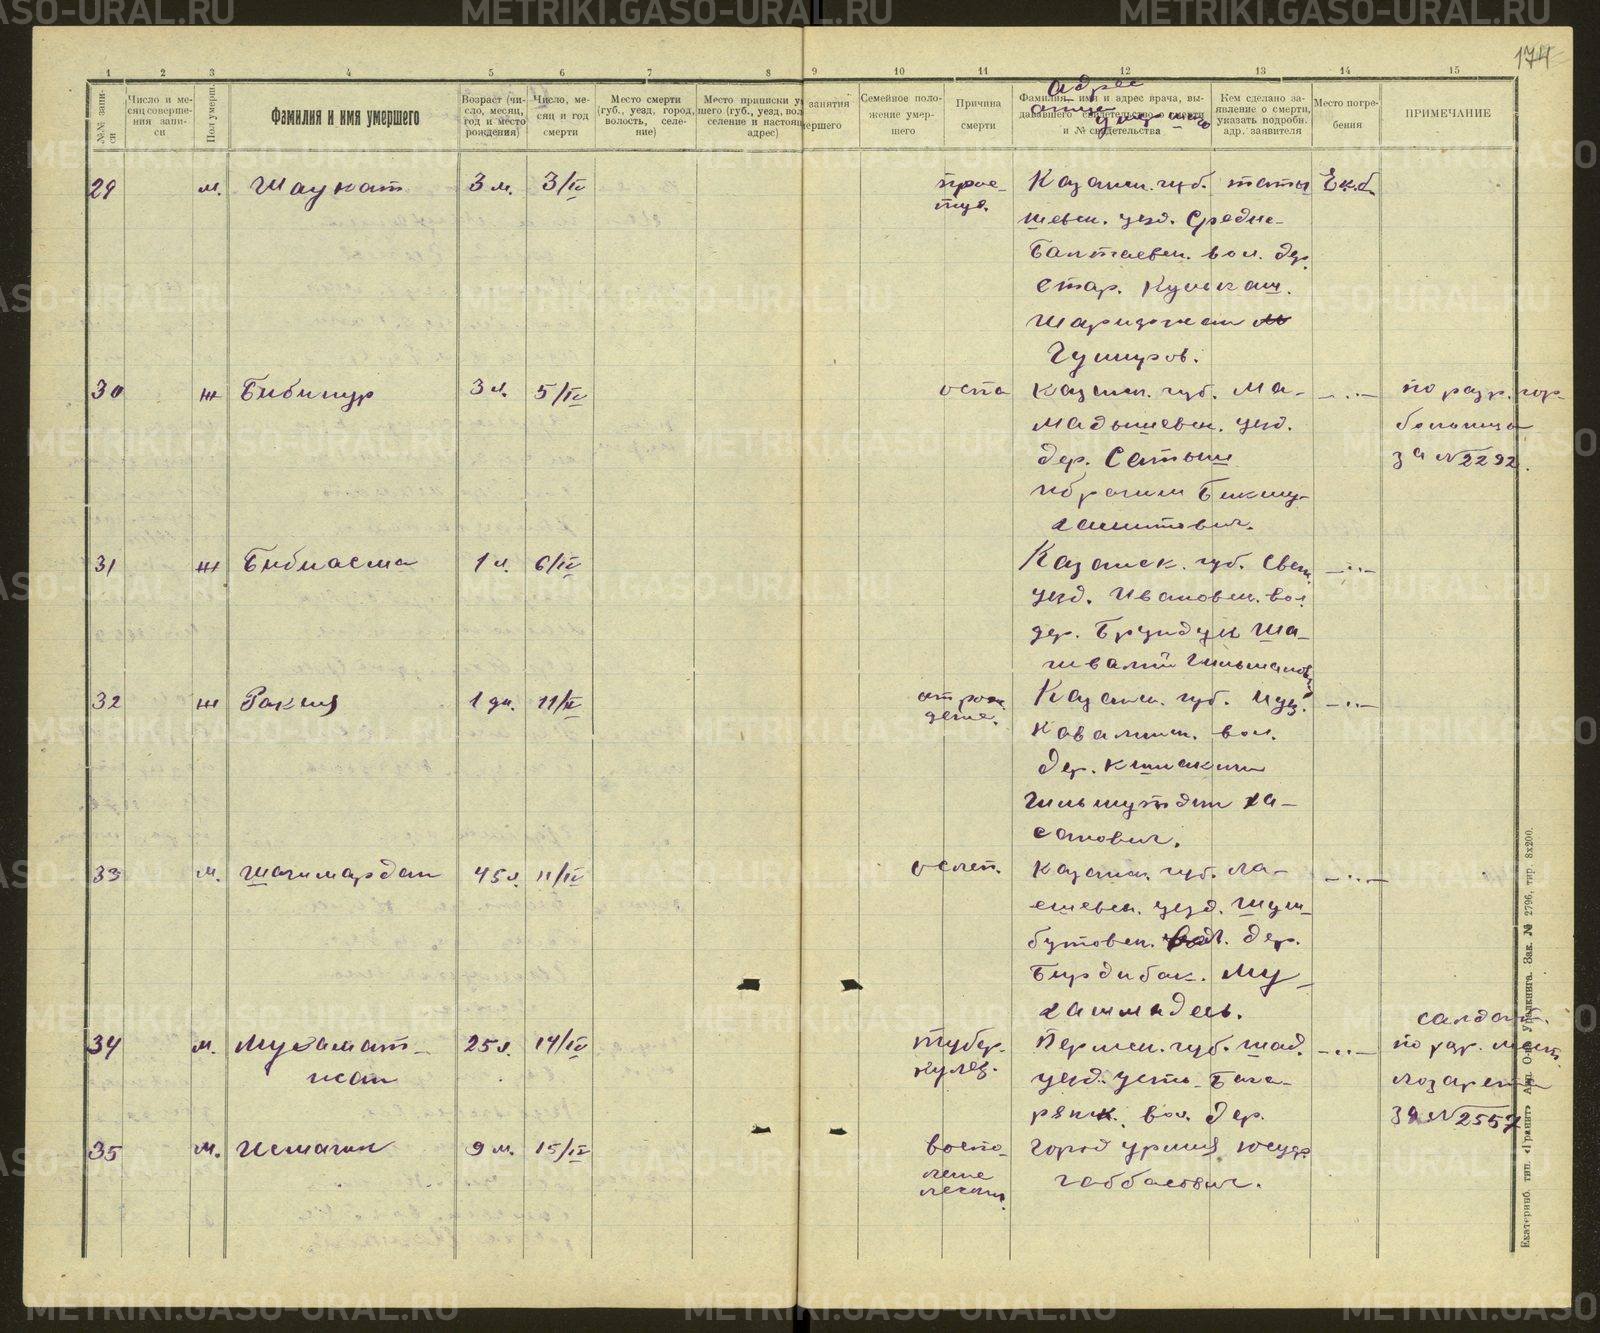 174
1 2 3 4 5 6 7 8 9 10 11 12 13 14 15
№№ запи-
си
Число и ме-
сяц соверше-
ния запи-
си
Пол умерш.
Фамилия и имя умершего
Возраст (чи-
сло, месяц,
год и место
рождения)
Число, ме-
сяц и год
смерти
Место смерти
(губ., уезд, город,
волость, селе-
ние)
Место приписки у
шего (губ., уезд, вол
селение и настоящ
адрес)
занятия
мершего
Семейное поло-
жение умер-
шего
Причина
смерти
адрес
отца
Фамилия, имя и адрес врача, вы-
дававшего свидетельство о смерти
и № свидетельства
Кем сделано за-
явление о смерти,
указать подробн.
адр. заявителя
Место погре-
бения
ПРИМЕЧАНИЕ
29 м. Шаукат 3 м. 3/IV прос-
туд.
Казанск. губ. тяты
шевск. уезд. Средне-
Балтаевск. вол. дер.
стар. Кулькаш.
Шариджан
30 ж Бибинур 3 л. 5/IV оспа
Казанск. губ. Ма-
мадышевск. уезд.
дер. Сатыш
Ибрагим Бикму-
хаметович.
по разр. гор.
больница
за № 2292.
31 ж Бибиасма 1 л. 6/IV
Казанск. губ. Свеяж.
уезд. Ивановск. вол
дер. Брундук Ша-
гивалий Гильманович
32 ж Ракия 1 дн. 11/IV от рож
дение.
Казанск. губ. и уез.
Кавалинск. вол.
дер.
Гильмутдин Ха-
санович.
33 м. Шагимардан 45 л. 11/IV
Казанск. губ. Ла-
ешевск. уезд. Шум-
бутовск. вол. дер.
Бирдибак. Му-
хаммадеев.
34 м. Мухамат-
жан 25 л. 14/IV тубер-
кулез.
Пермск. губ. Шад.
уезд. Усть-Бага-
рякск. вол. дер.
солдат.
по рар. мест.
лозарета
за № 2557
35 м. Исмагил 9 м. 15/IV воспо-
ление
легких.
город Урмия Юсуф
Габбасович.
Екб.
Екатеринб. тип. «Гранит» Акц. О-ва Уралкнига. Зак. № 2796, тир. 8х200.
METRIKI.GASO-URAL.RU